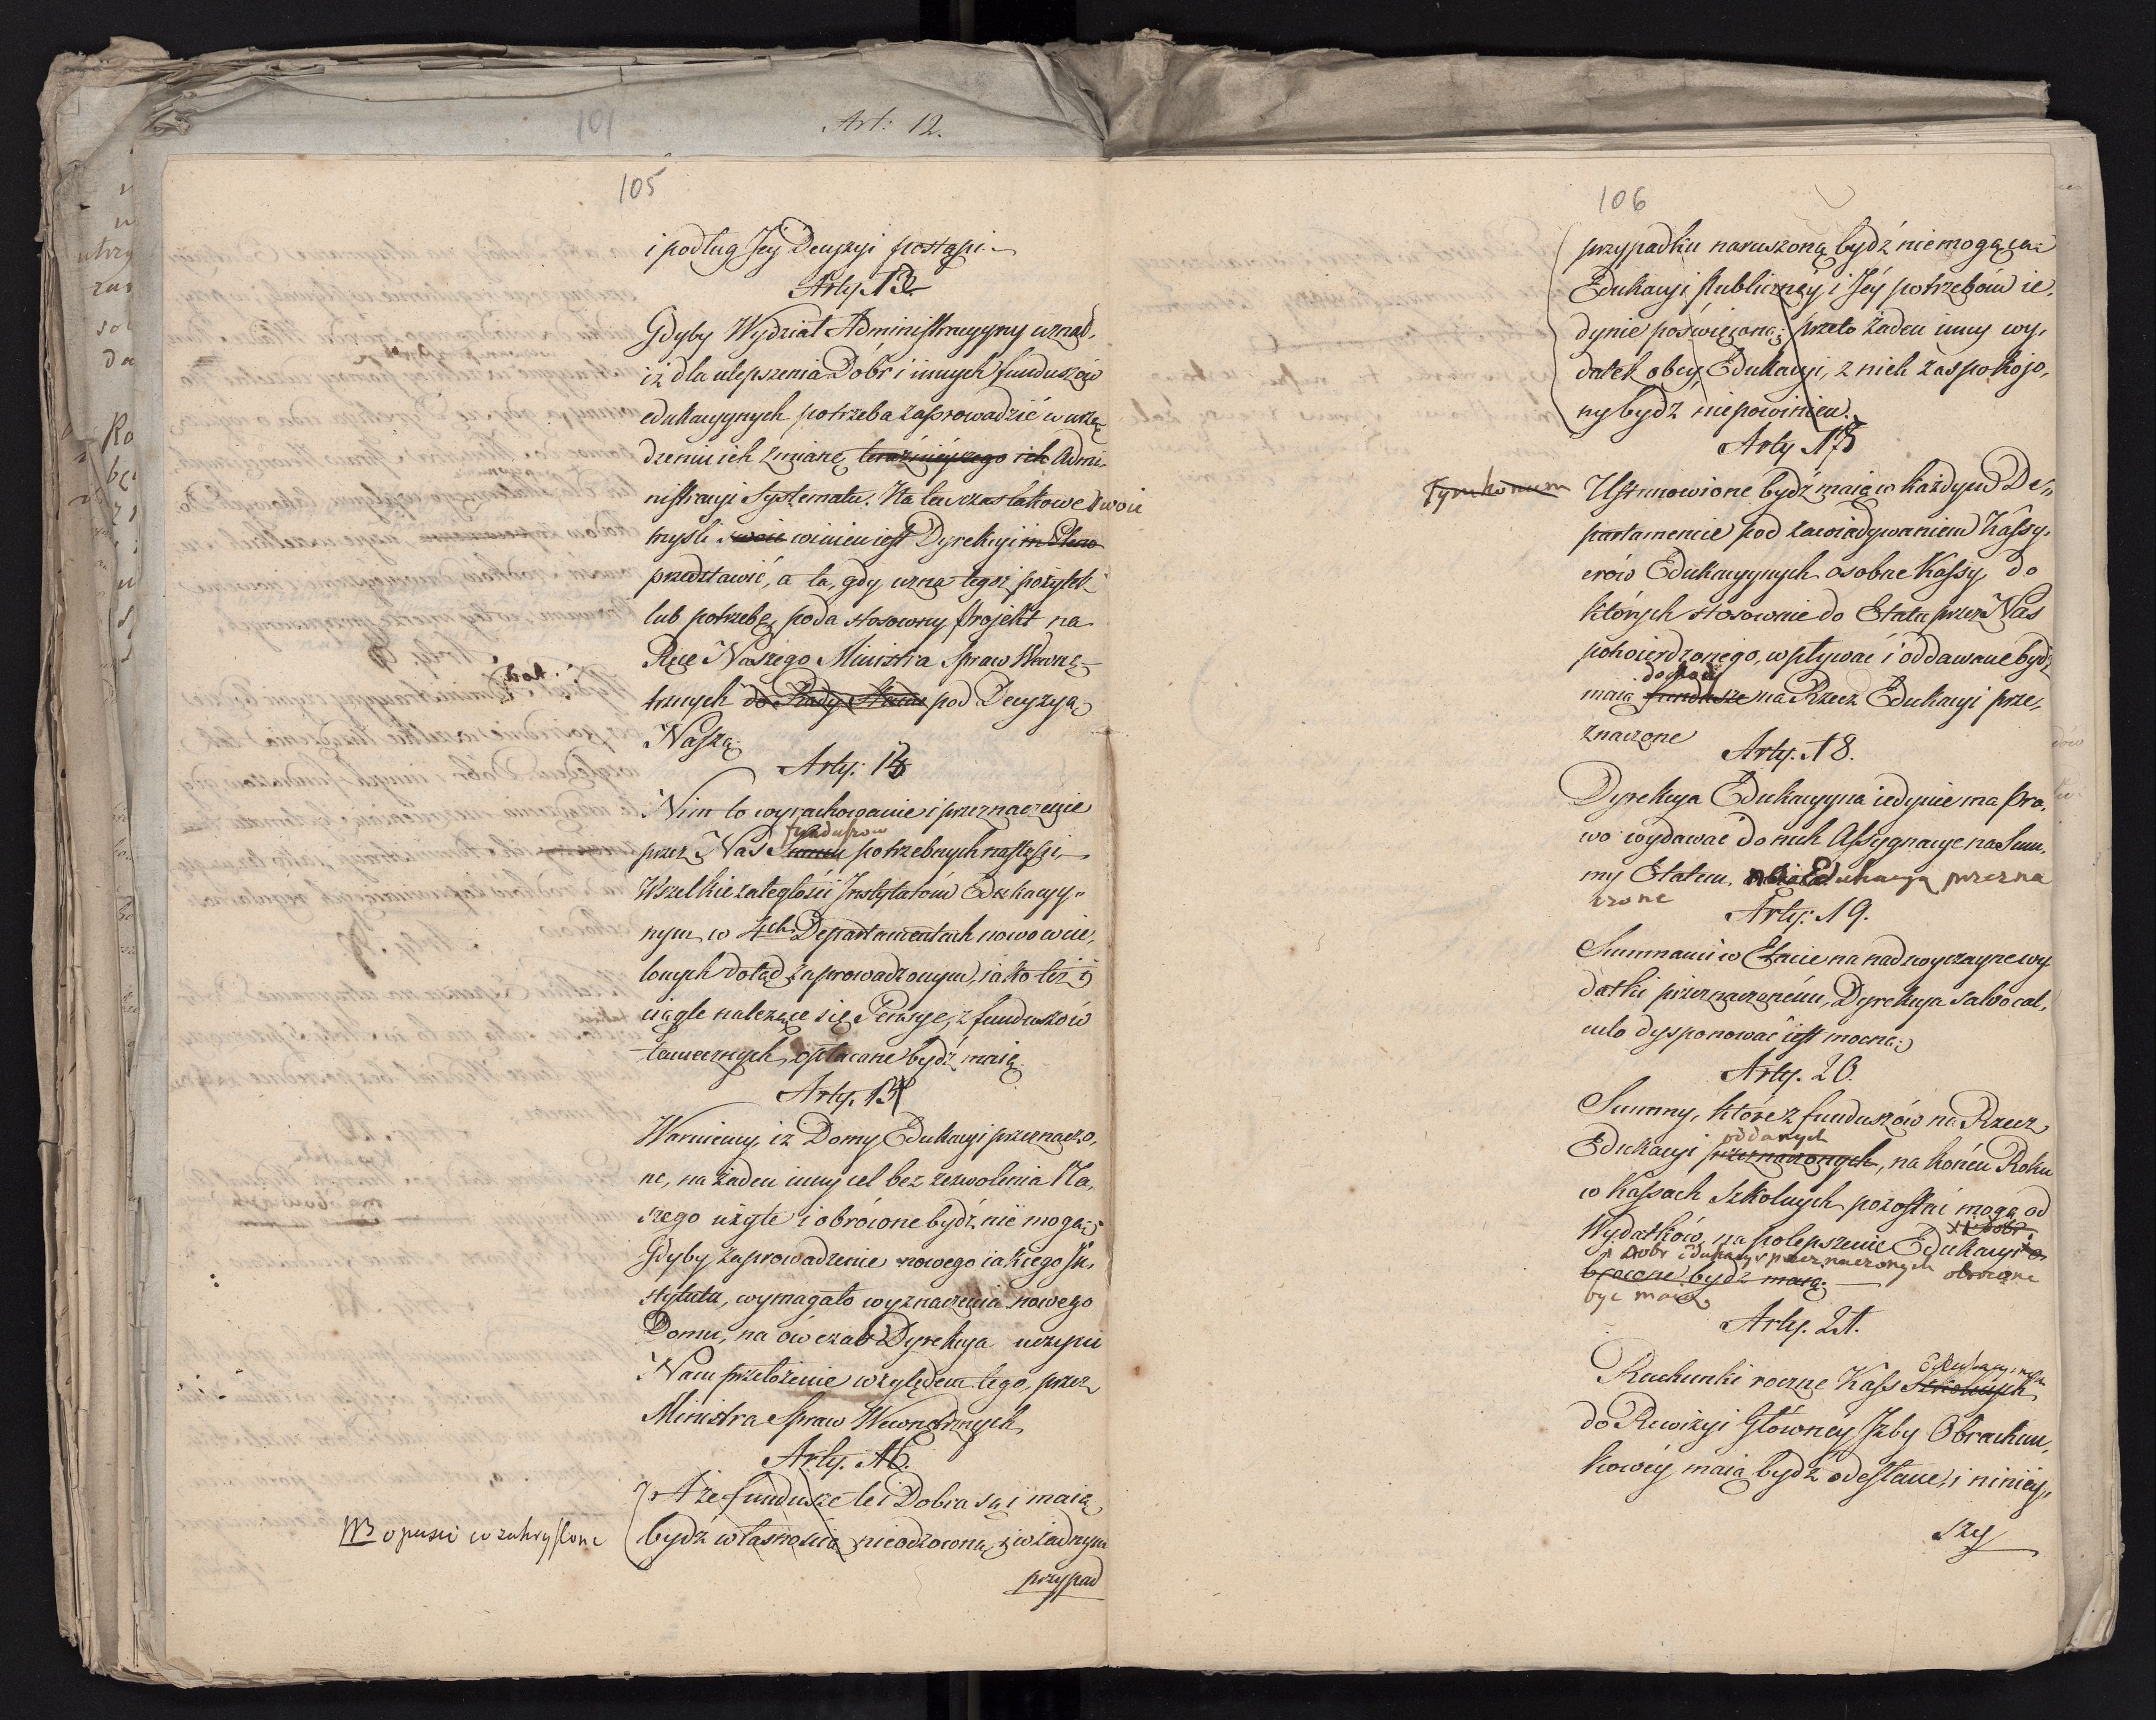 101
Art: 12.
105
i podług Jey Decyzyi postąpi.
Arty. 13.
Gdyby Wydział Administracyyny uznał,
iż dla ulepszenia Dobr i innych funduszów
edukacyynych potrzeba zaprowadzić w urzą
dzeniu ich zmianę teraźnieyszego ich Admi
nistracyi Systematu. Na ten czas takowe swoie
myśli swoie winien iest Dyrekcyi
przedstawić, a ta, gdy uzna tegoż pożytek
lub potrzebę, poda stosowny projekt na
Ręce Naszego Ministra Spraw Wewnę
trznych do Rady Stanu pod Decyzyą
Naszą.
Arty: 14
Nim to wyrachowanie i przeznaczenie
funduszow
przez Nas Summ potrzebnych nastąpi,
Wszelkie zaległości Instytutom Edukacyy
nym w 4ch Departamentach nowo wcie,
lonych dotąd zaprowadzonym, iako też i
ciągle należące się Pensye, z funduszów
tamecznych, opłacane bydź maią.
Arty. 15
Waruiemy, iz Domy Edukacyi przeznaczo,
ne, na żaden inny cel bez zezwolenia Na,
szego użyte i obrócone bydź nie mogą;
Gdyby zaprowadzenie nowego iakiego In,
stytutu, wymagało wyznaczenia nowego
Domu, na ów czas Dyrekcya uczyni
Nam przełożenie względem tego, przez
Ministra Spraw Wewnętrznych
Arty. 16.
A że fundusze te i Dobra są i maią
NB opusci co zakryslone
bydź własnością nieodzowną i w żadnym
przypad
106
przypadku naruszoną bydź nie mogącą
Edukacyi Publiczney i Jéy potrzebom ie,
dynie poswięconą; przeto żaden inny wy,
datek obcy, Edukacyi, z nich zaspokojo,
ny bydź niepowinien.
Arty 17
Ustanowione bydź maią w każdym De,
partamencie pod zawiadywaniem Kassy,
erów Edukacyynych osobne Kassy, do
których stosownie do Etatu przez Nas
potwierdzonego, wpływać i oddawane bydź
dochody
maią fundusze na Rzecz Edukacyi prze,
znaczone
Arty. 18.
Dyrekcya Edukacyyna iedynie ma pra,
wo wydawać do nich Assygnacye na Sum,
my Etatem, na Edukacyą przezna
czone
Arty: 19.
Summami w Etacie na nadzwyczayne wy
datki przeznaczonémi, Dyrekcya salvo cal,
culo dysponować iest mocna;
Arty. 20.
Summy, które z funduszów na Rzecz
oddanych
Edukacyi przeznaczonych, na końcu Roku
w Kassach Szkolnych pozostać mogą od
Wydatków, na polepszenie Edukacyi o
Dobr edukacyi przeznaczonych obrocone
brocone bydź maią.
byc maią
Arty. 21.
Edukacyinych
Rachunki roczne Kass Szkolnych
do Rewizyi Główney Izby Obrachun,
kowéy maią bydź odesłane, i niniey,
szy